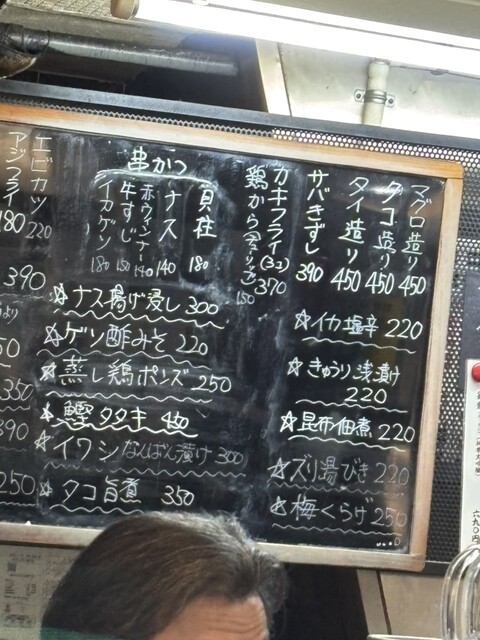 マグロ造り 450
タコ造り 450
タイ造り 450
サバきずし 390
カキフライ(3コ) 370
鶏から 150
串かつ
貝柱 180
ナス 140
赤ウィンナー 140
牛すじ 150
イカゲソ 180
エビカツ 220
アジフライ 180
☆イカ塩辛 220
☆きゅうり浅漬け
220
☆昆布佃煮 220
☆ズリ湯びき 220
☆梅くらげ 250
☆ナス揚げ浸し 300
☆ゲソ酢みそ 220
☆蒸し鶏ポンズ 250
☆鰹タタキ 450
☆イワシなんばん漬け 300
☆タコ旨煮 350
390
より
50
350
390
250
六九〇円